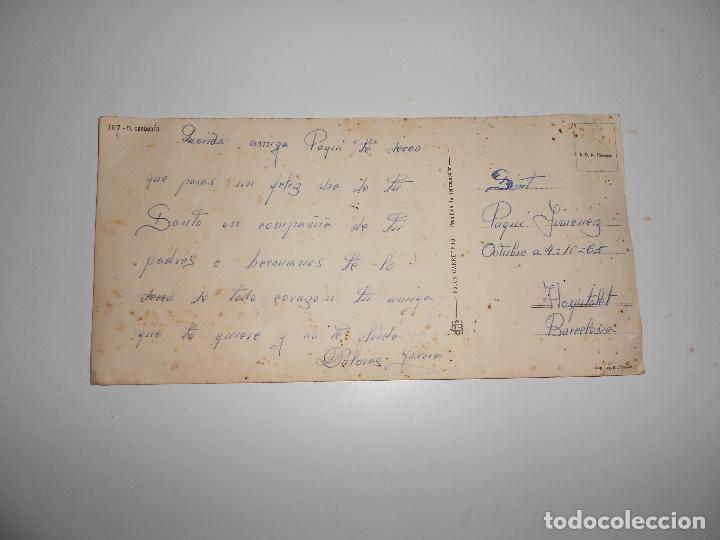 107 - EL CORDOBÉS
Querida amiga Paqui te deseo
que pases un feliz dia de tu
Santo en compañia de tu
padres e hermanos te lo
desea de todo corazon tu amiga
que te quiere y no te olvida
Dolores
FOTOS CARRETERO Prohibida la reproducción
Paqui Jimenez
Octubre a 4-10-65
Hospitalet
Barcelona
todocoleccion.net